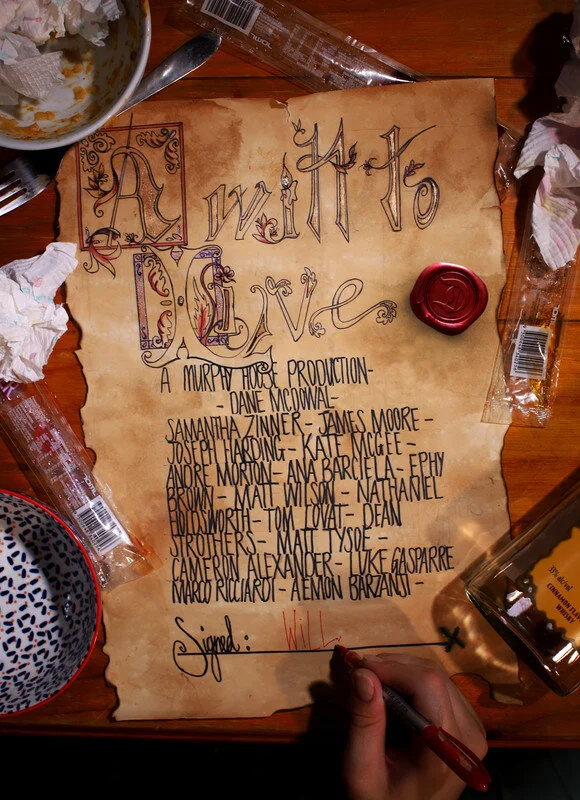 A will to
Live
A MURPHY HOUSE PRODUCTION-
- DANE MCDOWAL-
SAMANTHA ZINNER - JAMES MOORE -
JOSEPH HARDING - KATE MCGEE -
ANDRE MORTON - ANA BARCIELA - EPHY
BROWN - MATT WILSON - NATHANIEL
HOLDSWORTH - TOM LOVAT - DEAN
STROTHERS - MATT TYSOE -
CAMERON ALEXANDER - LUKE GASPARRE
MARCO RICCIARDI - AEMON BARZANJI -
Signed: WiLL X
33% alc/vol
CINNAMON
WHISKY